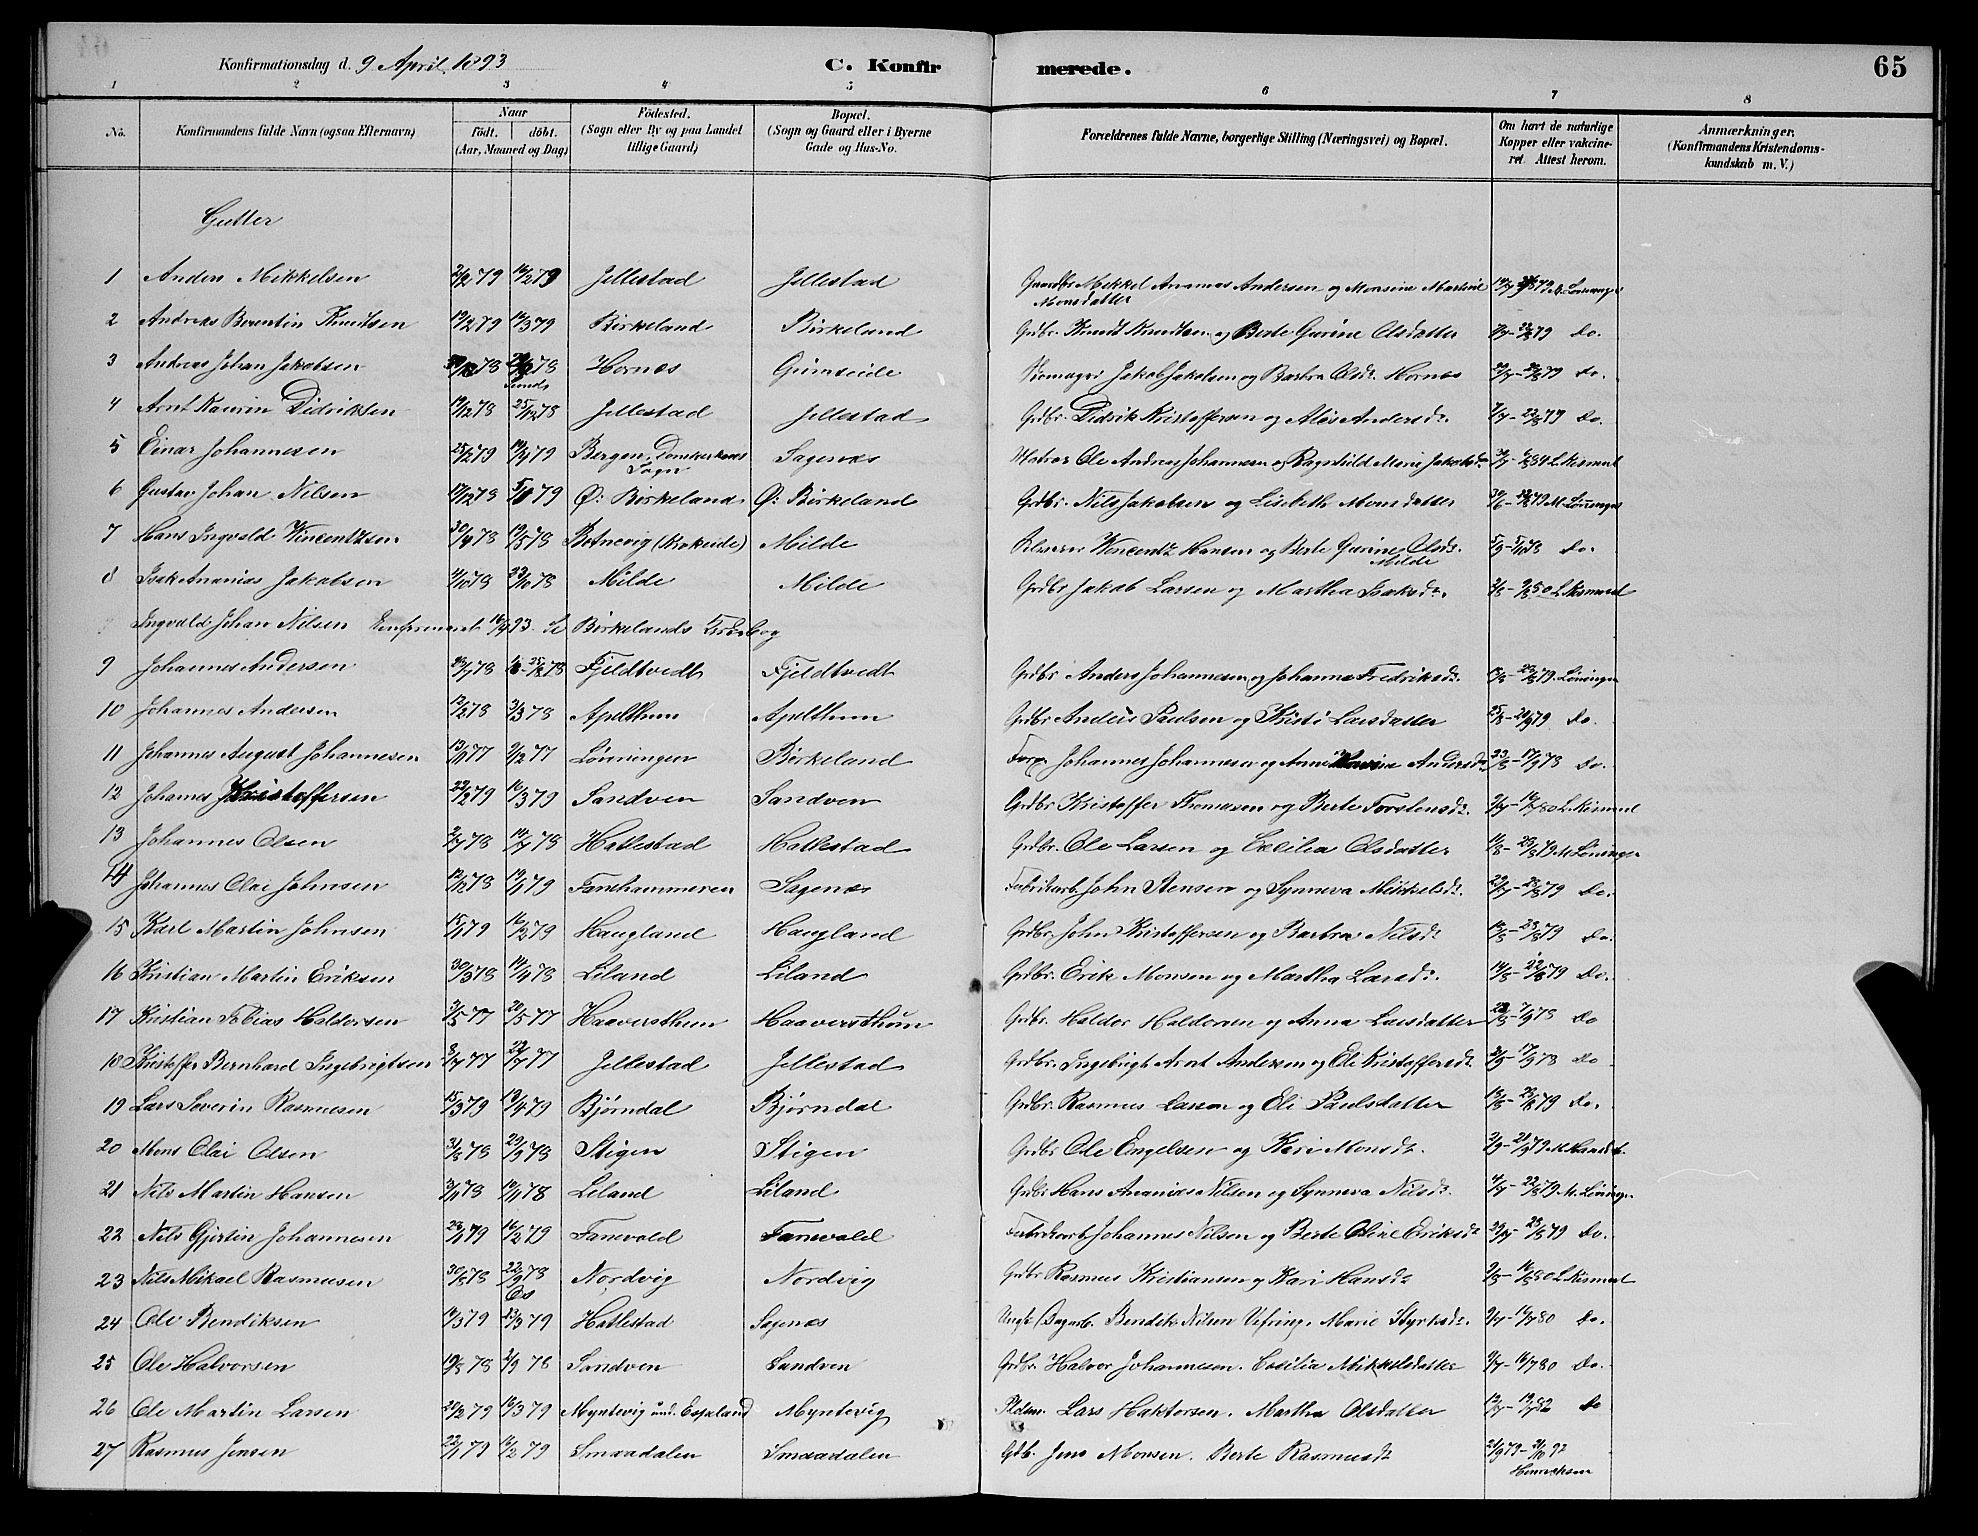 Konfirmationsdag d. 9 April 1893
C. Konfirmerede.
65
1 2 3 4 5 6 7 8
No.
Konfirmandens fulde Navn (ogsaa Efternavn)
Naar
født. døbt.
(Aar, Maaned og Dag)
Fødested.
(Sogn eller By og paa Landet
tillige Gaard)
Bopæl.
(Sogn og Gaard eller i Byerne
Gade og Hus-No.
Forældrenes fulde Navne, borgerlige Stilling (Næringsvei) og Bopæl.
Om havt de naturlige
Kopper eller vakcine-
ret. Attest herom.
Anmærkninger.
(Konfirmandens Kristendoms-
kundskab m. V.)
Gutter
1 Anders Mikkelsen 2/2 79 16/2 79 Jellestad Jellestad Mikkel Ananias Andersen og Monsine Martine
Monsdatter
2 Andreas Berentin Knudsen 19/2 79 /3 79 Birkeland Birkeland Grdbr. Knudt Knudsen og Berte Gurine Olsdatter 79 Do.
3 Andreas Johan Jakobsen 78 78 Hornæs Grimseide Jakob Jakobsen og Barbra Olsd. Hornæs 79 Do.
4 Arnt Kaurin Didriksen /12 78 25/12 78 Jellestad Jellestad Grdbr. Didrik Kristoffersen og Alis Andersd. 22/8 79 Do.
5 Einar Johannesen 25/2 79 14/4 79 Bergen, Domkirkens
Sogn Sagenæs Ole Andreas Johannesen og Ragnhild Marie Jakobsd. 84 L. Kismul
6 Gustav Johan Nilsen /12 78 5/1 79 Ø: Birkeland Ø: Birkeland Grdbr. Nils Jakobsen og Lisbeth Monsdatter 79 M. Lønninger
7 Hans Ingvald Vincentzsen 30/4 78 19/5 78 Botnevig (Krokeide) Milde Vincentz Hansen og Berte Gurine Olsd.
Milde 78 Do.
8 Isak Ananias Jakobsen 4/10 78 78 Milde Milde Grdbr. Jakob Larsen og Martha Isaksd. 80 L. Kismul
Ingvald Johan Nilsen 16/4 93 Birkelands
9 Johannes Andersen 78 78 Fjeldtvedt Fjeldtvedt Grdbr. Anders Johannesen og Johanna Fredriksd. 79 Lønninger
10 Johannes Andersen 12/2 78 3/3 78 Apelthun Apelthun Grdbr. Anders Paulsen og Kristi Larsdatter 79 Do.
11 Johannes August Johannesen 77 9/12 77 Lønningen Birkeland Johannes Johannesen og Anne Andersd. 78 Do.
12 Johannes Kristoffersen 22/2 79 16/3 79 Sandven Sandven Grdbr. Kristoffer Thomesen og Berte Torstensd. 80 L. Kismul
13 Johannes Olsen 2/7 78 14/7 78 Hatlestad Hatlestad Grdbr. Ole Larsen og Cecilia Olsdatter 79 M. Lønninger
14 Johannes Olai Johnsen 12/12 78 19/1 79 Fanehammeren Sagenæs Fabrikarb. John Stensen og Synneva Mikkelsd. 79 Do.
15 Karl Martin Johnsen 15/1 79 16/2 79 Haugland Haugland Grdbr. John Kristoffersen og Barbra Nilsd. 79 Do.
16 Kristian Martin Eriksen 30/3 78 14/4 78 Liland Liland Grdbr. Erik Monsen og Martha Larsd. 22/8 79 Do.
17 Kristian Tobias Haldorsen 3/5 77 20/5 77 Haaversthun Haaversthun Grdbr. Haldor Haldorsen og Anna Larsdatter 7/9 78 Do
18 Kristoffer Bernhard Ingebrigtsen 8/7 77 22/7 77 Jellestad Jellestad Grdbr. Ingebrigt Arnt Andersen og Eli Kristoffersd. 17/9 78 Do
19 Lars Severin Rasmusen 15/3 79 /4 79 Bjørndal Bjørndal Grdbr. Rasmus Larsen og Eli Paulsdatter 79 Do.
20 Mons Olai Olsen 31/8 78 29/9 78 Stigen Stigen Grdbr. Ole Engelsen og Kari Monsd. 79
21 Nils Martin Hansen 3/11 78 /11 78 Liland Liland Grdbr. Hans Ananias Nilsen og Synneva Nilsd. 22/8 79 M. Lønninger
22 Nils Gjertin Johannesen 79 16/2 79 Fanevold Fanevold Fabrikarb. Johannes Nilsen og Berte Oline Eriksd. 79 Do.
23 Nils Mikael Rasmusen 30/8 78 22/9 78
Os Nordvig Nordvig Grdbr. Rasmus Kristiansen og Kari Hansd. 80 L. Kismul
24 Ole Bendiksen 79 79 Hatlestad Sagenæs Bendik Nilsen Vefring. Marie Styrksd. 80 Do.
25 Ole Halvorsen 19/8 78 /9 78 Sandven Sandven Grdbr. Halvor Johannesen. Cecilia Mikkelsdatter 80 Do.
26 Ole Martin Larsen 79 16/3 79 Myntevig und. Espeland Myntevig Lars Haktorsen. Martha Olsdatter 82 Do
27 Rasmus Jensen 22/1 79 16/2 79 Smaadalen Smaadalen Gdb. Jens Monsen. Berte Rasmusd. 92
Henrichsen